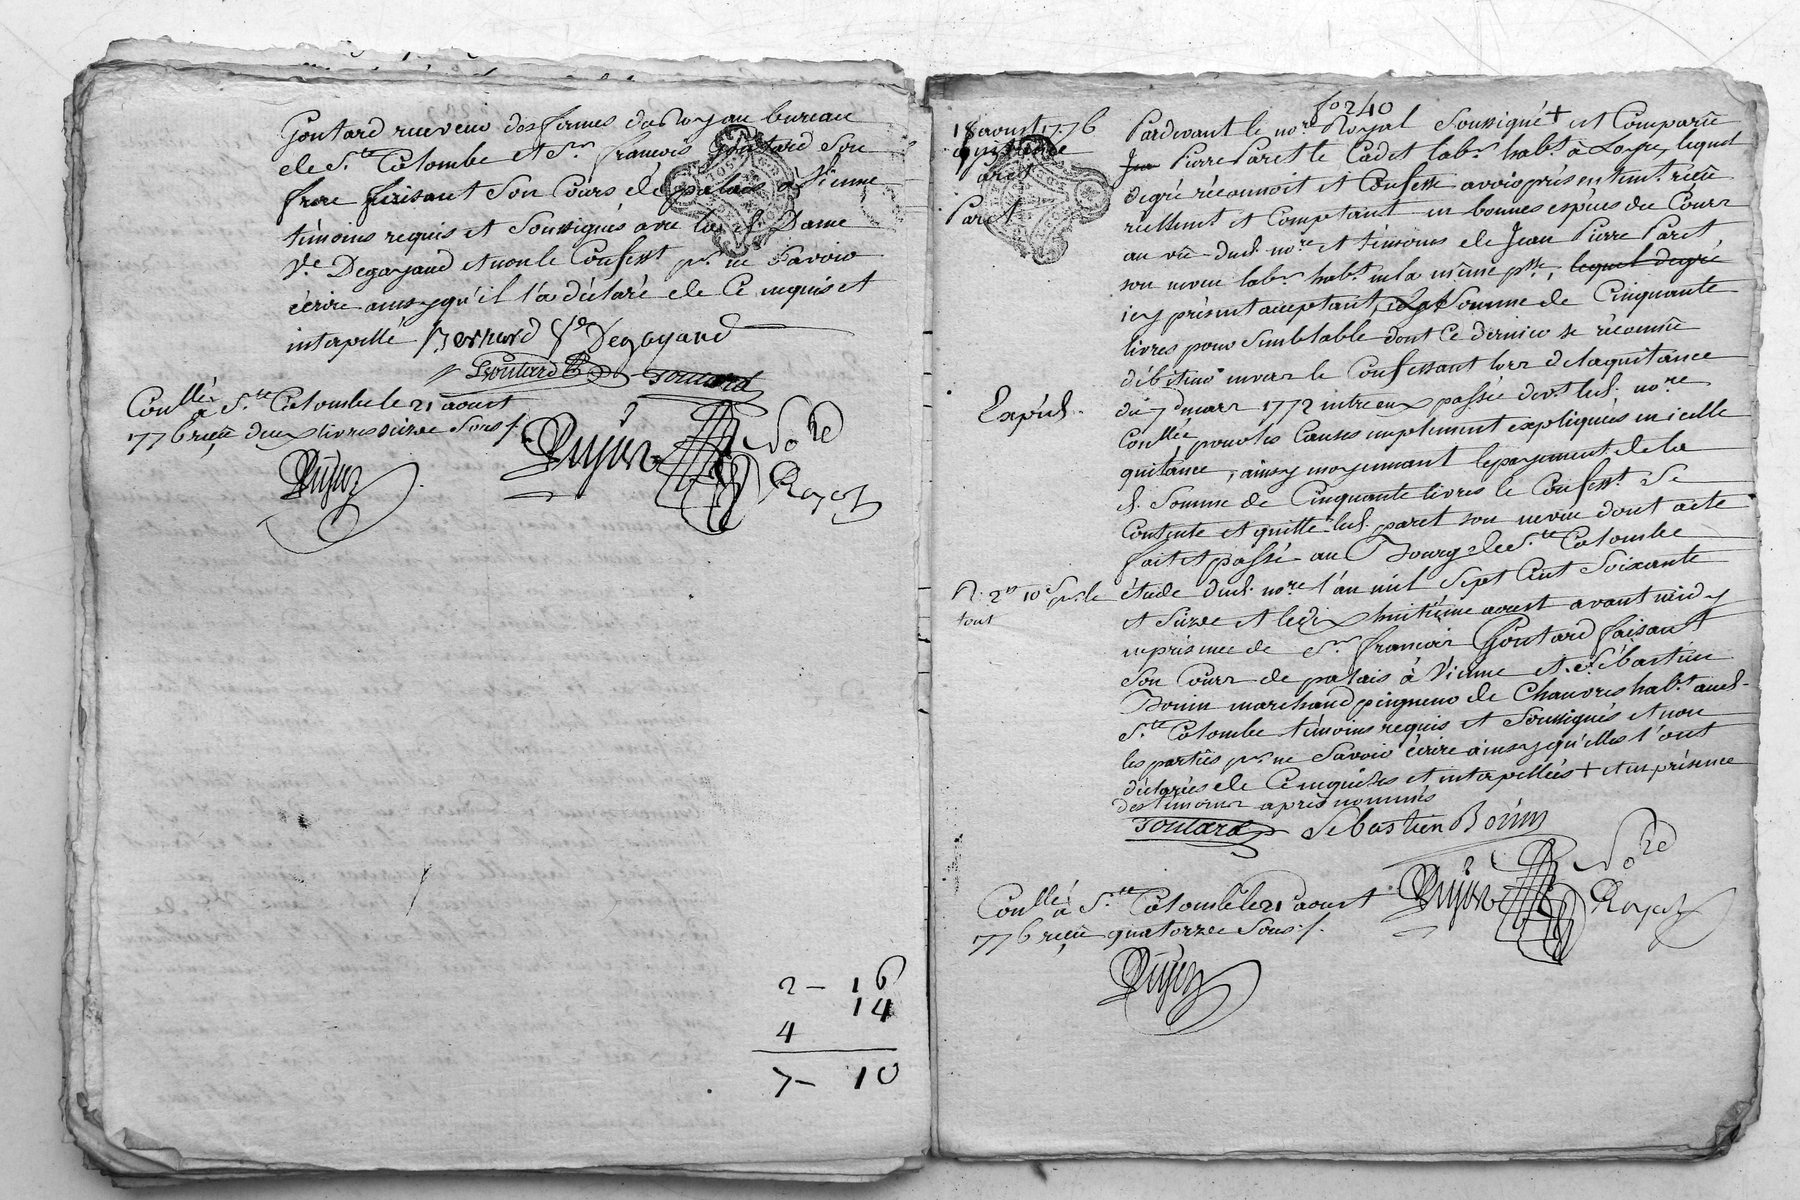 Goutard receveur des fermes du Royau bureau
de S.te Colombe et S.r françois Goutard son
frere faisant son Cours de palais a Vienne
témoins requis et soussignés avec lad. Dame
V.e Degayand et non le Confess.t p.r ne savoir
écrire ainsy qu'il l'a déclaré de Ce requis et
interpellé Bernard V.e Degayand
Goutard Goutard
Conllé à S.te Colombe le 21 aoust
1776 reçu deux livres seize sous
No.re
Royal
2 - 16
14
4
7 - 10
f.o 240
18 aoust 1776
quittance
Paret
Paret
Pardevant le no.re Royal soussigné + est Comparu
Jea Pierre Paret le Cadet lab.r hab.t à Loyre, lequel
degré réconnoit et Confesse avoir présentem.t reçu
réellement et Comptant en bonnes espèces du Cours
au vû dud. no.re et témoins de Jean Pierre Paret
son neveu lab.r hab.t en la même p.sse, lequel degré
icy présent acceptant, la somme de Cinquante
livres pour semblable dont Ce dernier se réconnu
débiteur envers le Confessant lors de la quitance
du 7 mars 1772 entre eux passée dev.t led. no.re
Expéd.
Conllée pour les Causes amplement expliquées en icelle
quitance, ainsy moyennant le payement de la
d. somme de Cinquante livres le Confess.t se
Contente et quitte led. paret son neveu dont acte
fait et passé au Bourg de S.te Colombe
étude dud. no.re l'an mil sept Cent soixante
R. 2 10 p.r le
tout
et seize et le dix huitième aoust avant midy
en présence de S.r françois Goutard faisant
son Cours de palais à Vienne et S.r Sébastien
Bonin marchand peigneur de Chanvres hab.t aud.
S.te Colombe témoins requis et soussignés et non
les parties p.r ne savoir écrire ainsy qu'elles l'ont
déclarées de Ce enquises et interpellées + et en présence
des témoins après nommés
Goutard Sebastien Bonin
No.re
Royal
Conllé à S.te Colombe le 21 aoust
1776 reçu quatorze sous